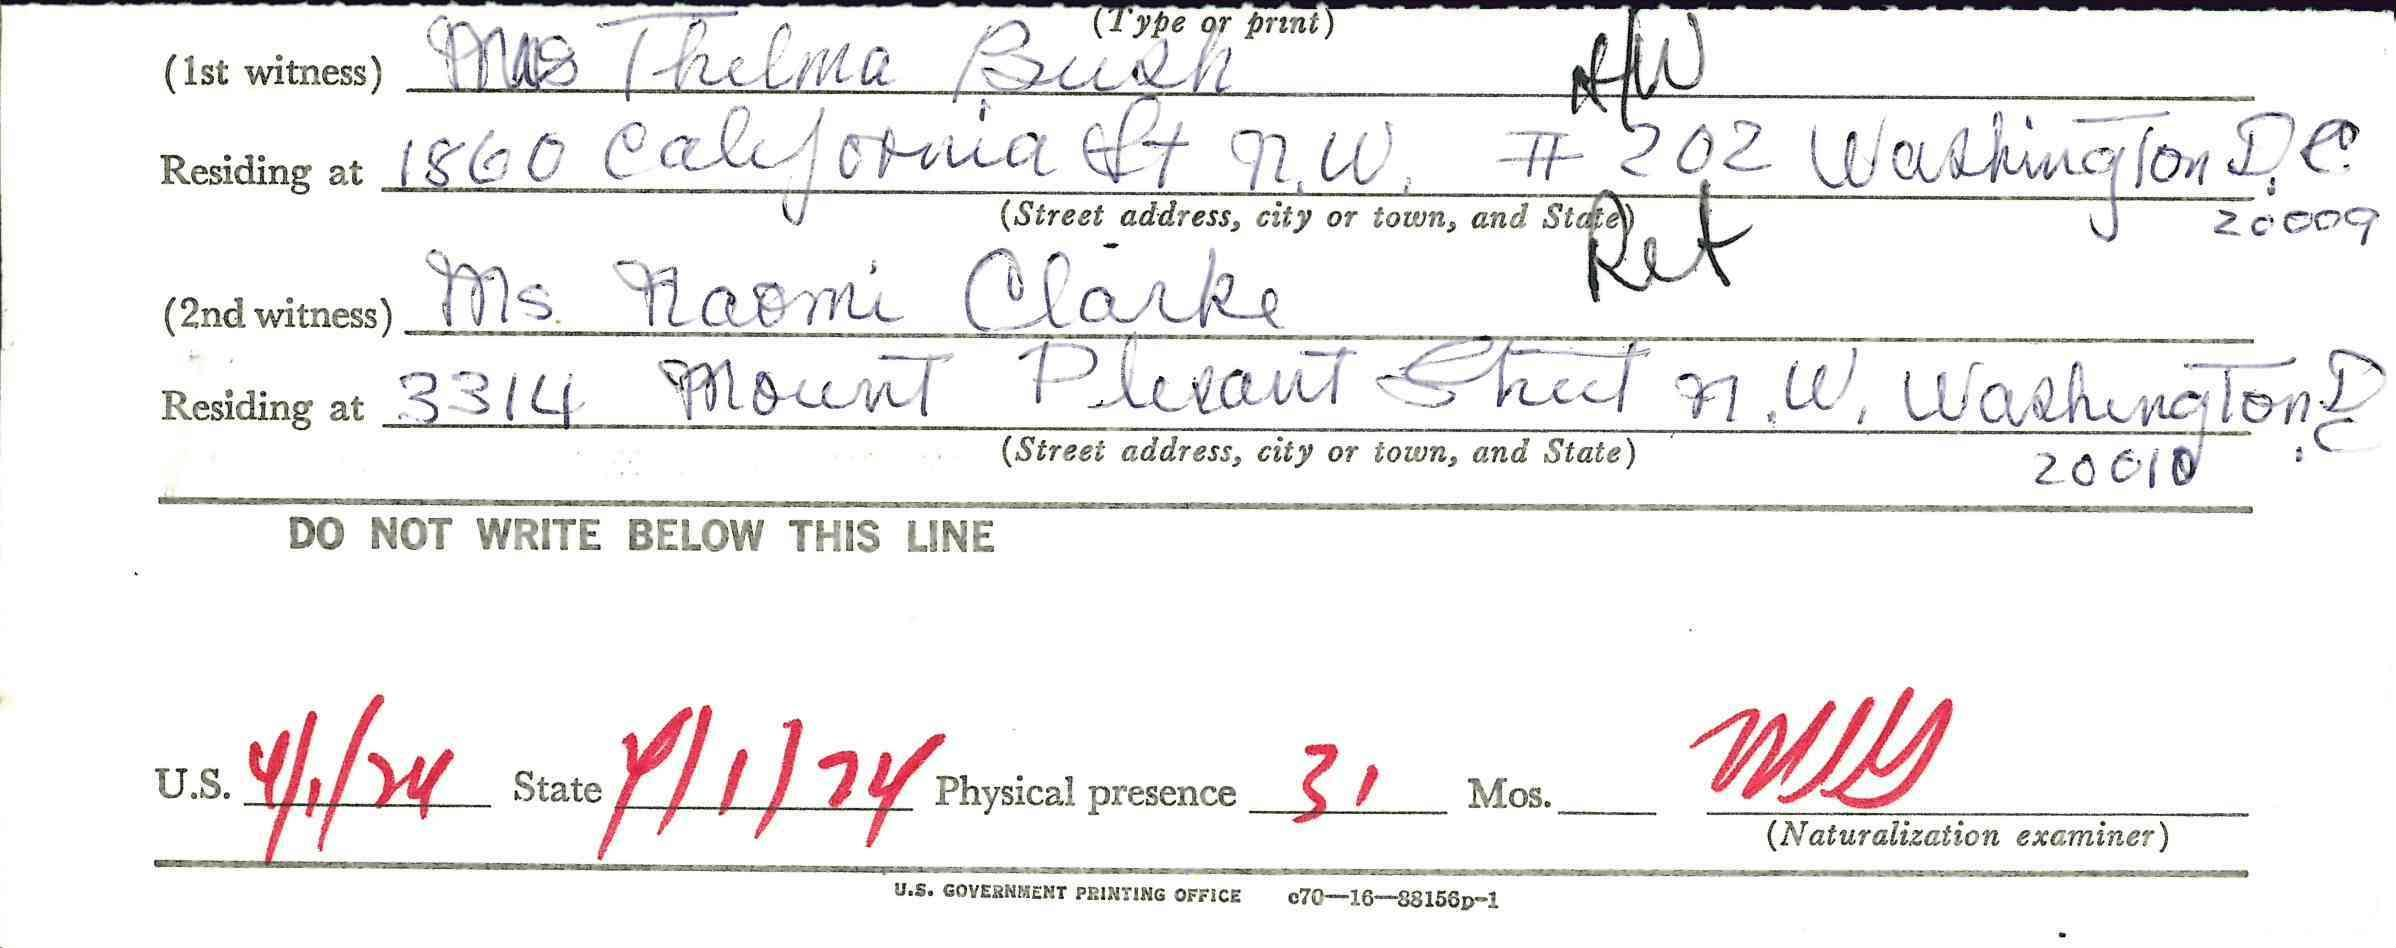 (Type or print)
(1st witness) Mrs Thelma Bush H/W
Residing at 1860 California St N.W. # 202 Washington D.C.
(Street address, city or town, and State) 20009
Ret
(2nd witness) Ms. Naomi Clarke
Residing at 3314 Mount Plesant Street N.W. Washington D.C
(Street address, city or town, and State) 20010
DO NOT WRITE BELOW THIS LINE
U.S. 4/1/74 State 4/1/74 Physical presence 31 Mos.
(Naturalization examiner)
U.S. GOVERNMENT PRINTING OFFICE c70—16—88156p-1